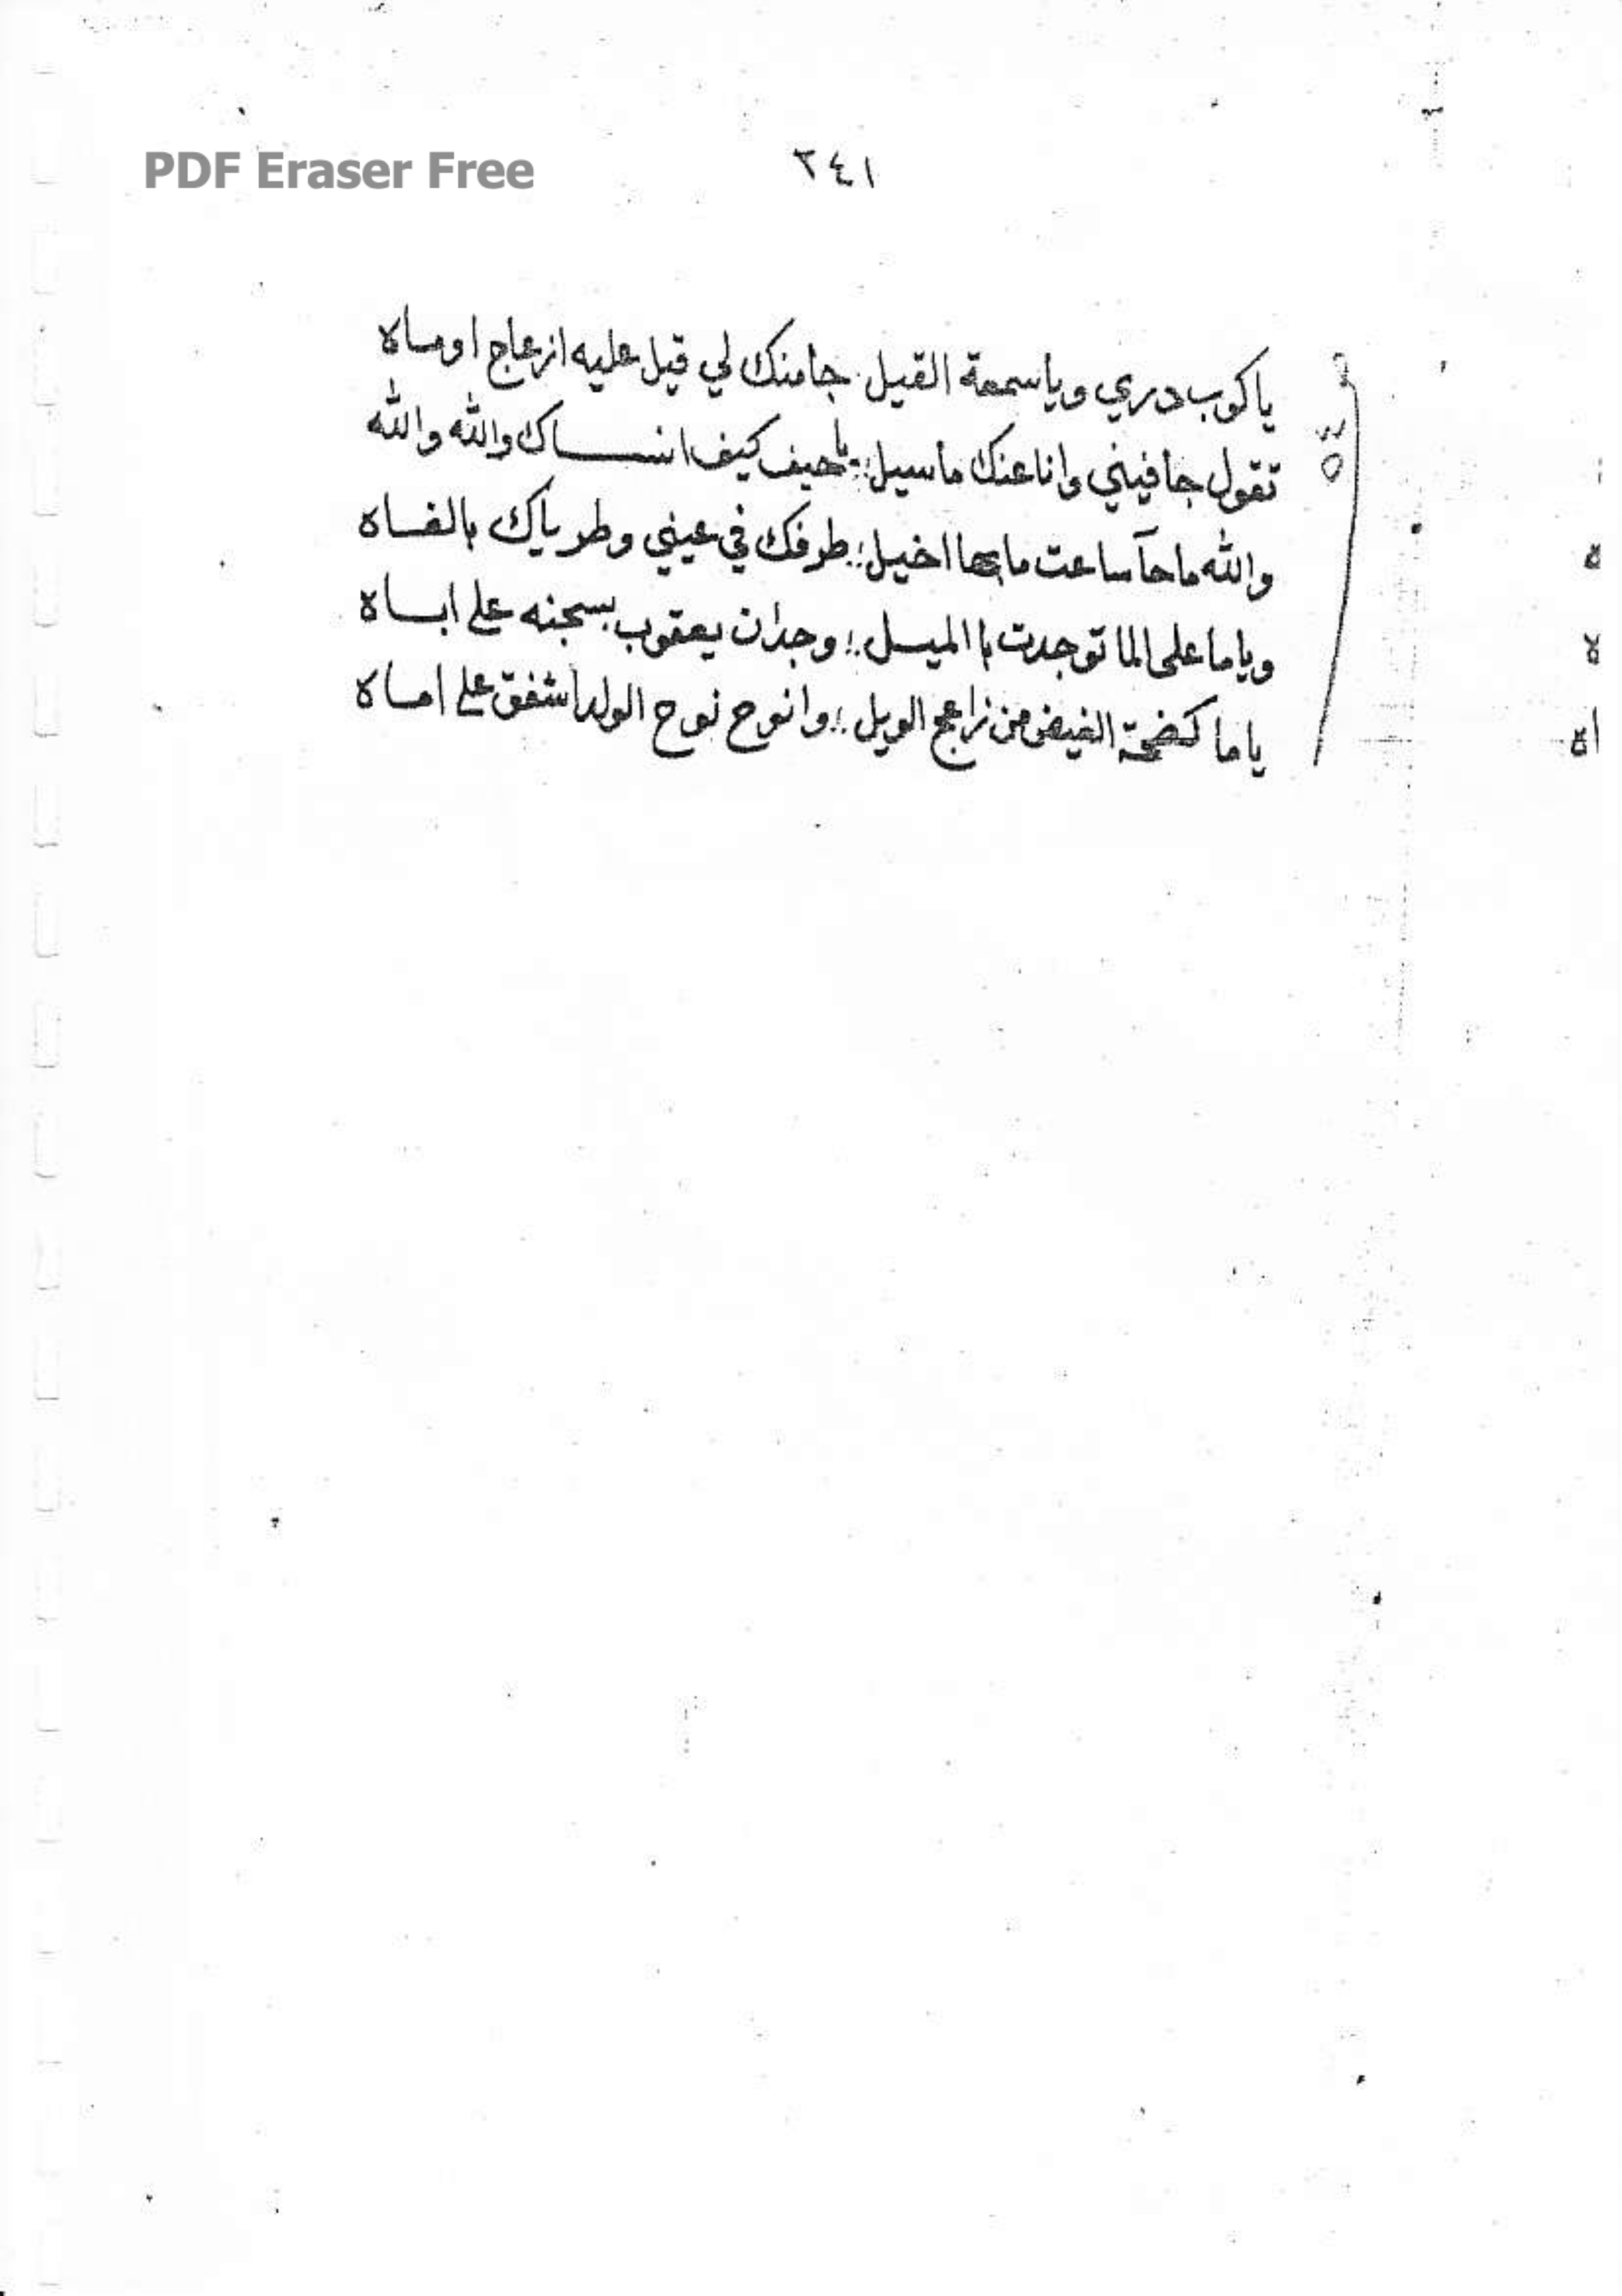 PDF Eraser Free
٢٤١
ياكوب دري وياسمعة القيل جامنك لي قيل عليه ازعاج اوماه
تقول جافيني وانا عنك ماسيل ياحيف كيف انساك والله والله
والله ماحآ ساعت مابها اخيل طرفك في عيني وطرياك بالفاه
وياما على الما توجدت باالميل وجدان يعقوب بسجنه على ابـاه
ياما كضحة الغيض من نزاعج الويل وانوح نوح الولد اشفق على امـاه